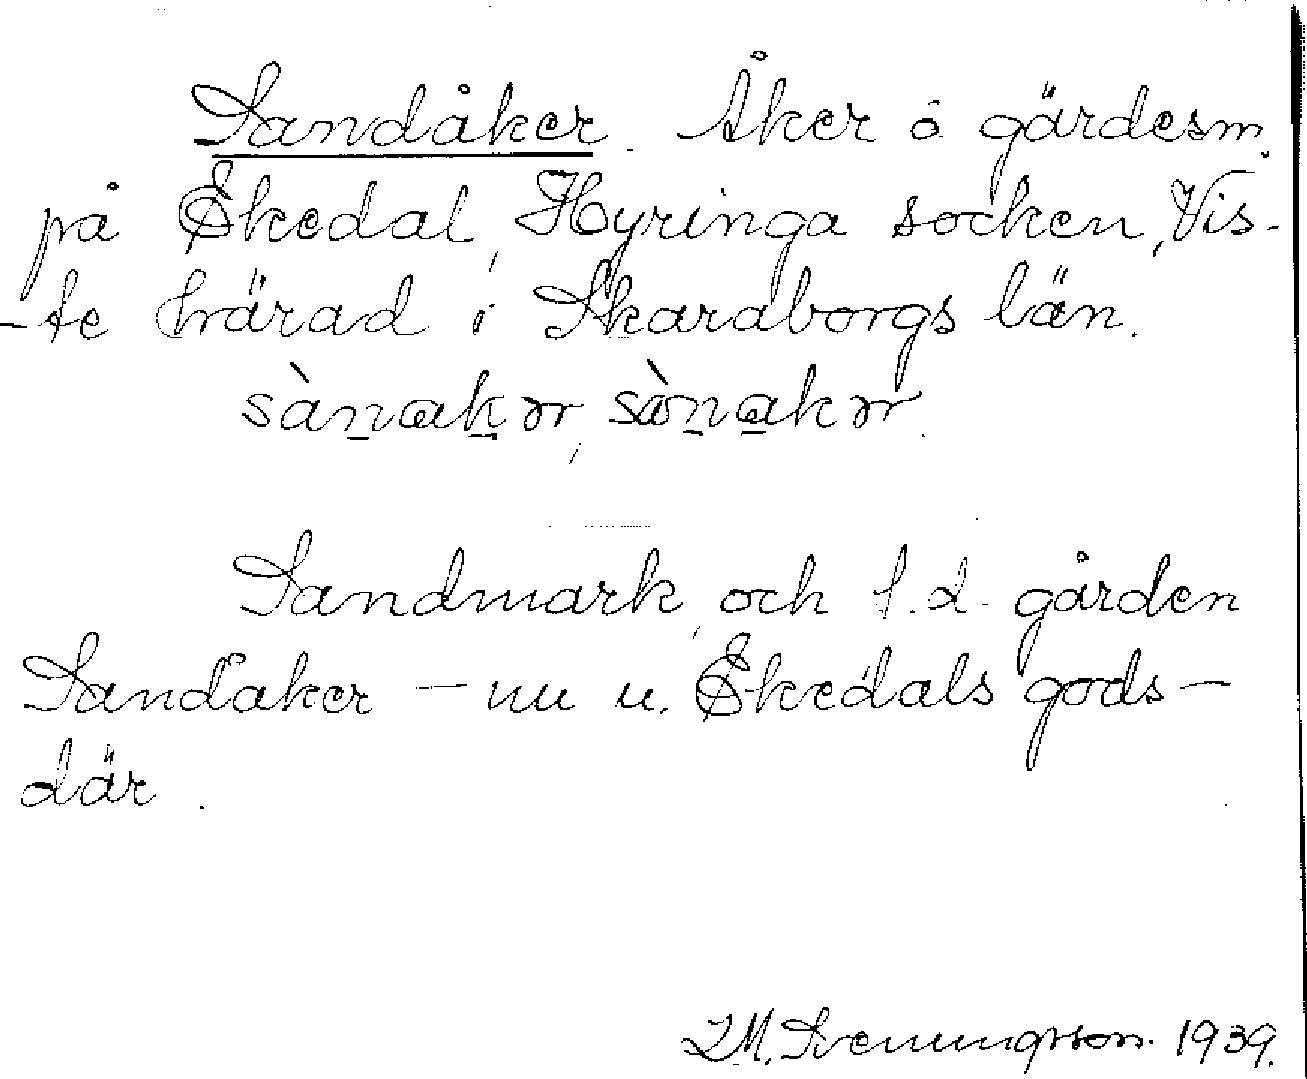 Sandåker. Åker å gärdesm.
på Ekedal, Hyringa socken, Vis-
-te härad i Skaraborgs län.
sànakər, sànakər.
Sandmark, och f.d. gården
Sandåker – nu u. Ekedals gods –
där.
I.M. Svenungsson. 1939.